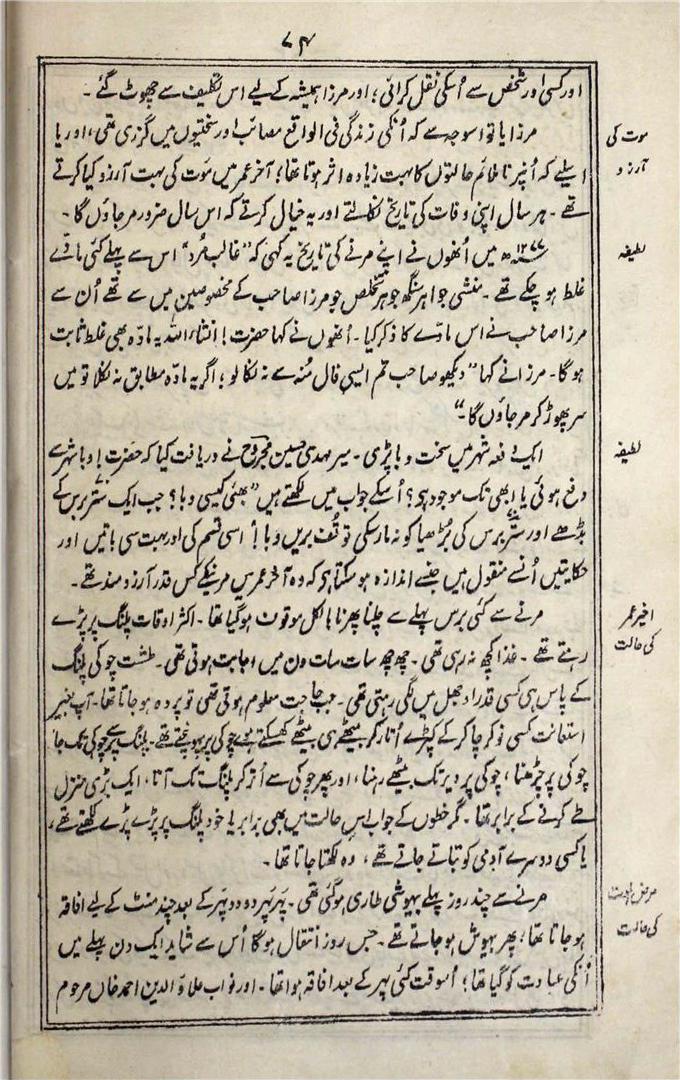 ۷۴
اور کسی اور شخص سے اُسکی نقل کرائی؛ اور مرزا ہمیشہ کے لیے اس تکلیف سے چھوٹ گئے ۔
موت کی
آرزو
مرزا یا تو اسوجہ سے کہ اُنکی زندگی فی الواقع مصائب اور سختیوں میں گزری تھی، اور یا
اسلیے کہ اُنپر ناملائم حالتوں کا بہت زیادہ اثر ہوتا تھا؛ آخر عمر میں موت کی بہت آرزو کیا کرتے
تھے ۔ ہر سال اپنی وفات کی تاریخ نکالتے اور یہ خیال کرتے کہ اس سال ضرور مر جاؤں گا ۔
لطیفہ
۱۲۷۷ھ میں اُنھوں نے اپنے مرنے کی تاریخ یہ کہی کہ "غالب مُرد" اس سے پہلے کئی مادّے
غلط ہو چکے تھے ۔ منشی جواہر سنگھ جوہر تخلص جو مرزا صاحب کے مخصوصین میں سے تھے اُن سے
مرزا صاحب نے اس مادّے کا ذکر کیا ۔ اُنھوں نے کہا حضرت! انشاء اللہ یہ مادّہ بھی غلط ثابت
ہوگا ۔ مرزا نے کہا "دیکھو صاحب تم ایسی فال مُنہ سے نہ نکالو؛ اگر یہ مادّہ مطابق نہ نکلا تو میں
سر پھوڑ کر مر جاؤں گا ۔"
لطیفہ
ایک دفعہ شہر میں سخت وبا پڑی ۔ میر مہدی حسین مجروح نے دریافت کیا کہ حضرت! وبا شہر سے
دفع ہوئی یا ابھی تک موجود ہی؟ اُسکے جواب میں لکھتے ہیں "بھئی کیسی وبا؟ جب ایک ستّر برس کے
بڈھے اور ستّر برس کی بُڑھیا کو نہ مار سکی تو تُف بریں وبا!" اسی قسم کی اور بہت سی باتیں اور
حکایتیں اُنسے منقول ہیں جنسے اندازہ ہو سکتا ہی کہ وہ آخر عمر میں مرنیکے کس قدر آرزومند تھے ۔
اخیر عمر
کی حالت
مرنے سے کئی برس پہلے سے چلنا پھرنا بالکل موقوف ہو گیا تھا ۔ اکثر اوقات پلنگ پر پڑے
رہتے تھے ۔ غذا کچھ نہ رہی تھی ۔ چھ چھ سات سات دن میں اجابت ہوتی تھی ۔ طشت چوکی پلنگ
کے پاس ہی کسی قدر اوجھل میں لگی رہتی تھی ۔ جب حاجت معلوم ہوتی تھی تو پردہ ہو جاتا تھا ۔ آپ بغیر
استعانت کسی نوکر چاکر کے کپڑے اُتار کر بیٹھے ہی بیٹھے کھسکتے ہوے چوکی پر پہونچتے تھے ۔ پلنگ پر سے چوکی تک جانا
چوکی پر چڑھنا، چوکی پر دیر تک بیٹھے رہنا، اور پھر چوکی سے اُتر کر پلنگ تک آنا، ایک بڑی منزل
طے کرنے کے برابر تھا ۔ مگر خطوں کے جواب اس حالت میں بھی برابر یا خود پلنگ پر پڑے پڑے لکھتے تھے،
یا کسی دوسرے آدمی کو بتاتے جاتے تھے، وہ لکھتا جاتا تھا ۔
مرض الموت
کی حالت
مرنے سے چند روز پہلے بیہوشی طاری ہو گئی تھی ۔ پہر پہر دو دو پہر کے بعد چند منٹ کے لیے افاقہ
ہو جاتا تھا؛ پھر بیہوش ہو جاتے تھے ۔ جس روز انتقال ہوگا اُس سے شاید ایک دن پہلے میں
اُنکی عیادت کو گیا تھا؛ اُسوقت کئی پہر کے بعد افاقہ ہوا تھا ۔ اور نواب علاؤ الدین احمد خاں مرحوم